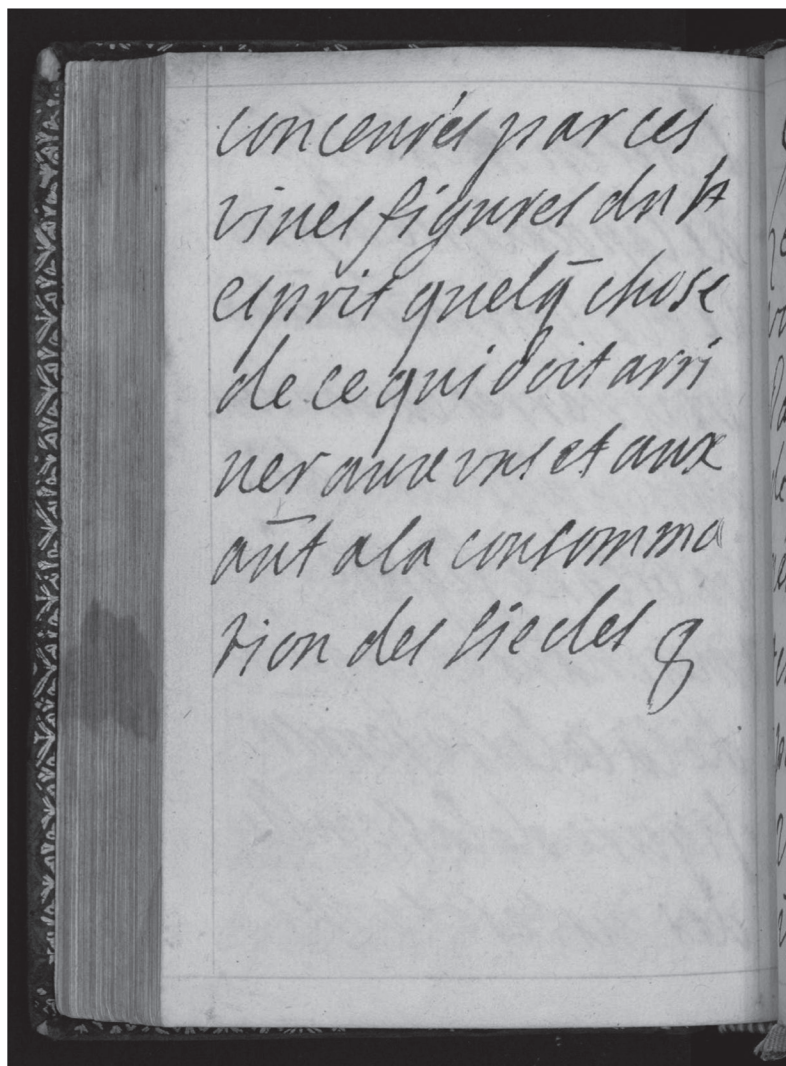 conceuvés par ces
vives figures du st
esprit quelq̄ chose
de ce qui doit arri
uer aux vns et aux
aūt a la consomma
tion des siecles